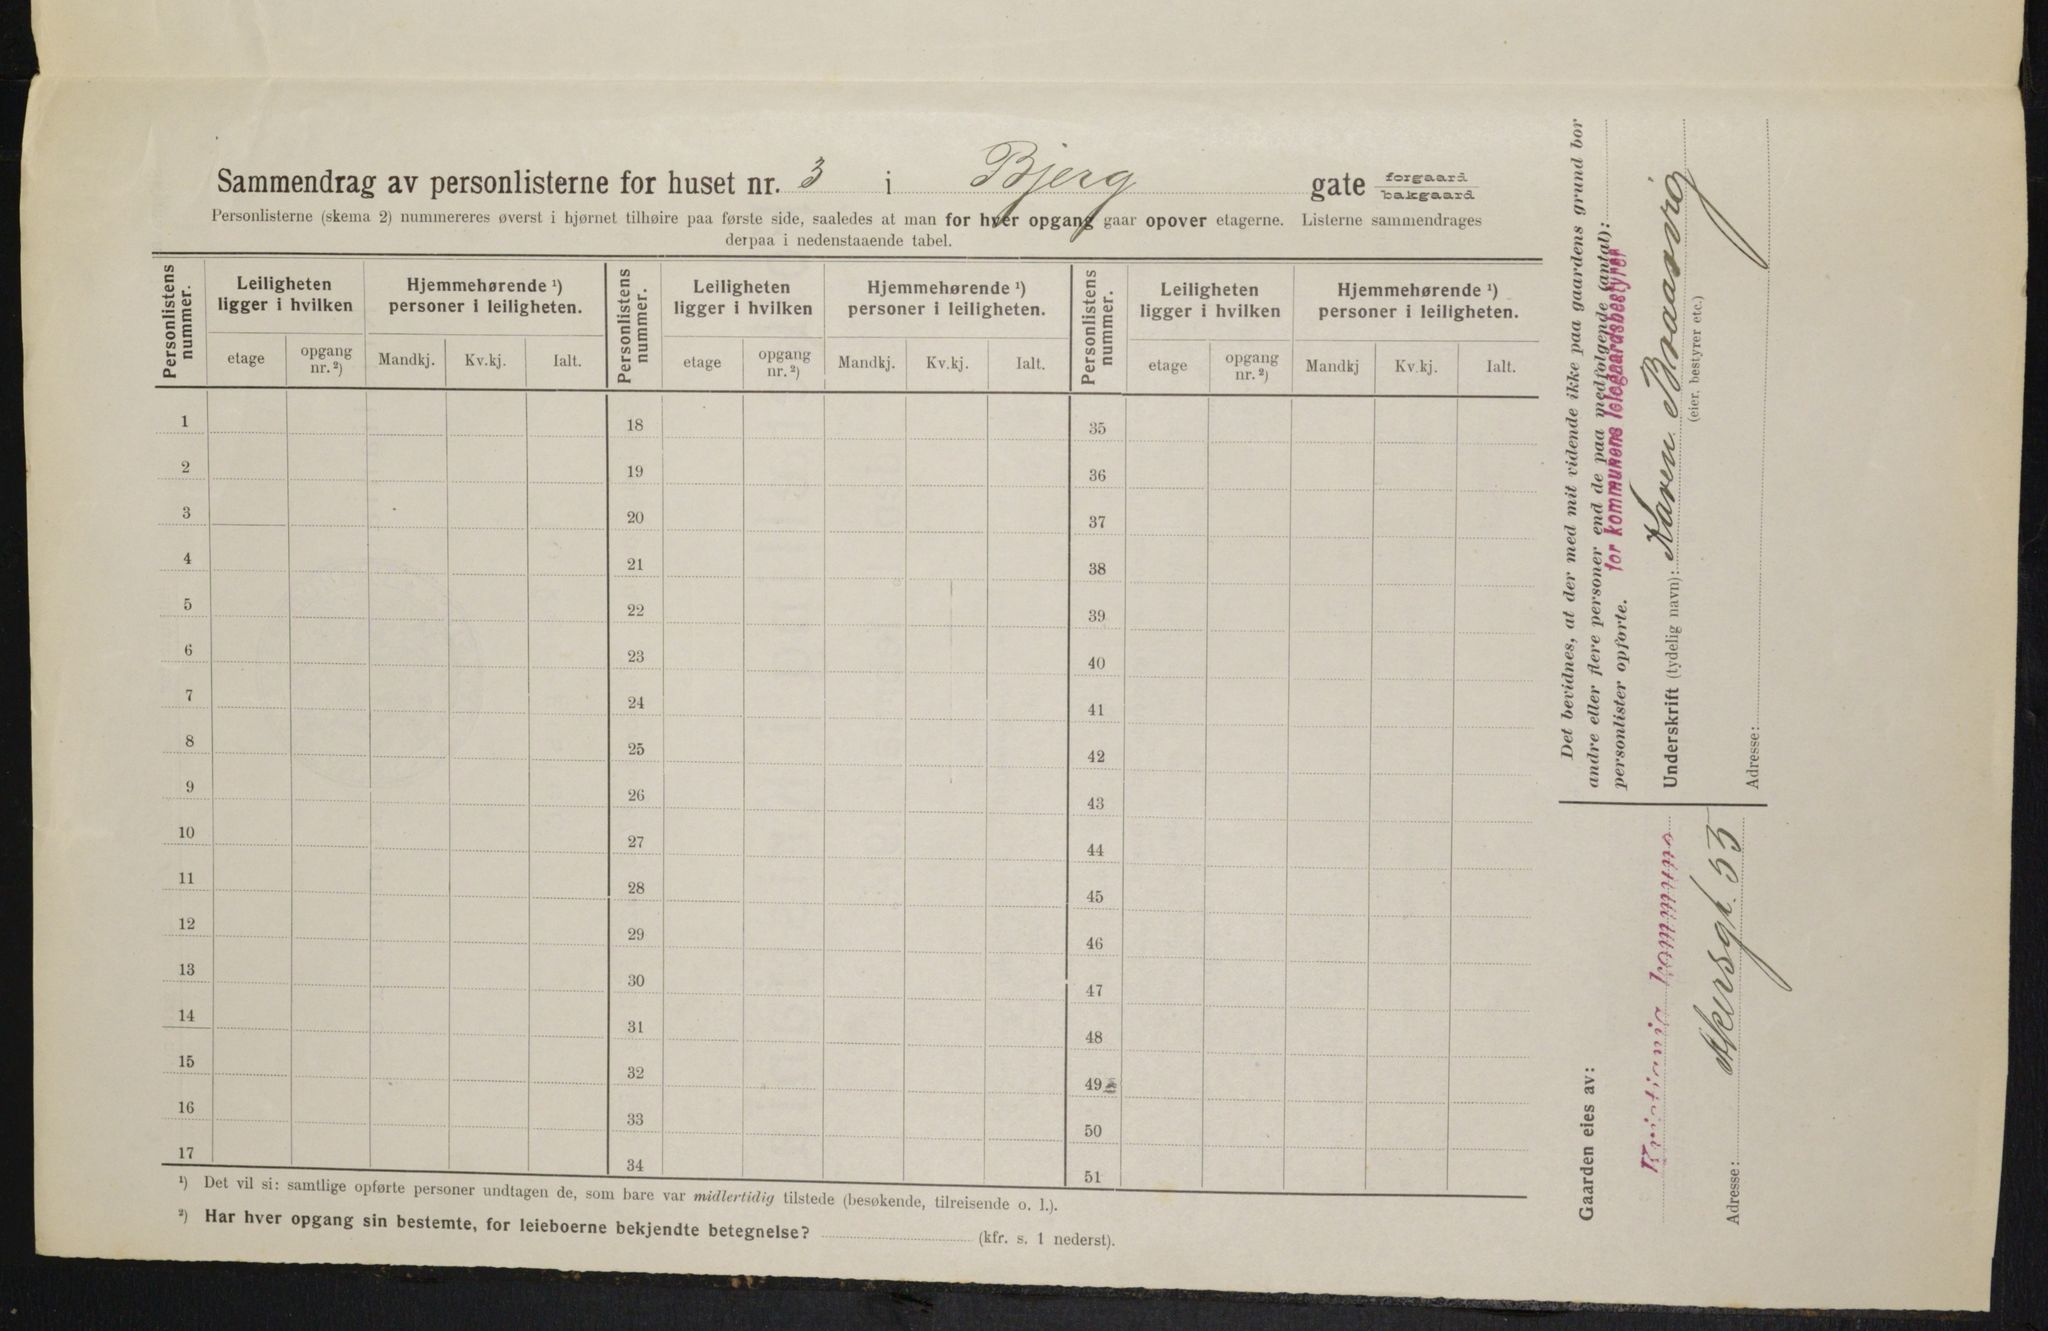 Sammendrag av personlisterne for huset nr. 3 i Bjerg gate forgaard bakgaard
Personlisterne (skema 2) nummereres øverst i hjørnet tilhøire paa første side, saaledes at man for hver opgang gaar opover etagerne. Listerne sammendrages
derpaa i nedenstaaende tabel.
Personlistens nummer. Leiligheten ligger i hvilken Hjemmehørende ¹) personer i leiligheten. Personlistens nummer. Leiligheten ligger i hvilken Hjemmehørende ¹) personer i leiligheten. Personlistens nummer. Leiligheten ligger i hvilken Hjemmehørende ¹) personer i leiligheten.
etage opgang nr. ²) Mandkj. Kv.kj. Ialt. etage opgang nr. ²) Mandkj. Kv.kj. Ialt. etage opgang nr. ²) Mandkj Kv.kj. Ialt.
1 18 35
2 19 36
3 20 37
4 21 38
5 22 39
6 23 40
7 24 41
8 25 42
9 26 43
10 27 44
11 28 45
12 29 46
13 30 47
14 31 48
15 32 49
16 33 50
17 34 51
¹) Det vil si: samtlige opførte personer undtagen de, som bare var midlertidig tilstede (besøkende, tilreisende o. l.).
²) Har hver opgang sin bestemte, for leieboerne bekjendte betegnelse? (kfr. s. 1 nederst).
Gaarden eies av:
Kristiania kommune
Adresse: Akersgt. 55
Det bevidnes, at der med mit vidende ikke paa gaardens grund bor
andre eller flere personer end de paa medfølgende (antal):
personlister opførte. for kommunens leiegaardsbestyrer
Underskrift (tydelig navn): Karen Braarvig
(eier, bestyrer etc.)
Adresse: